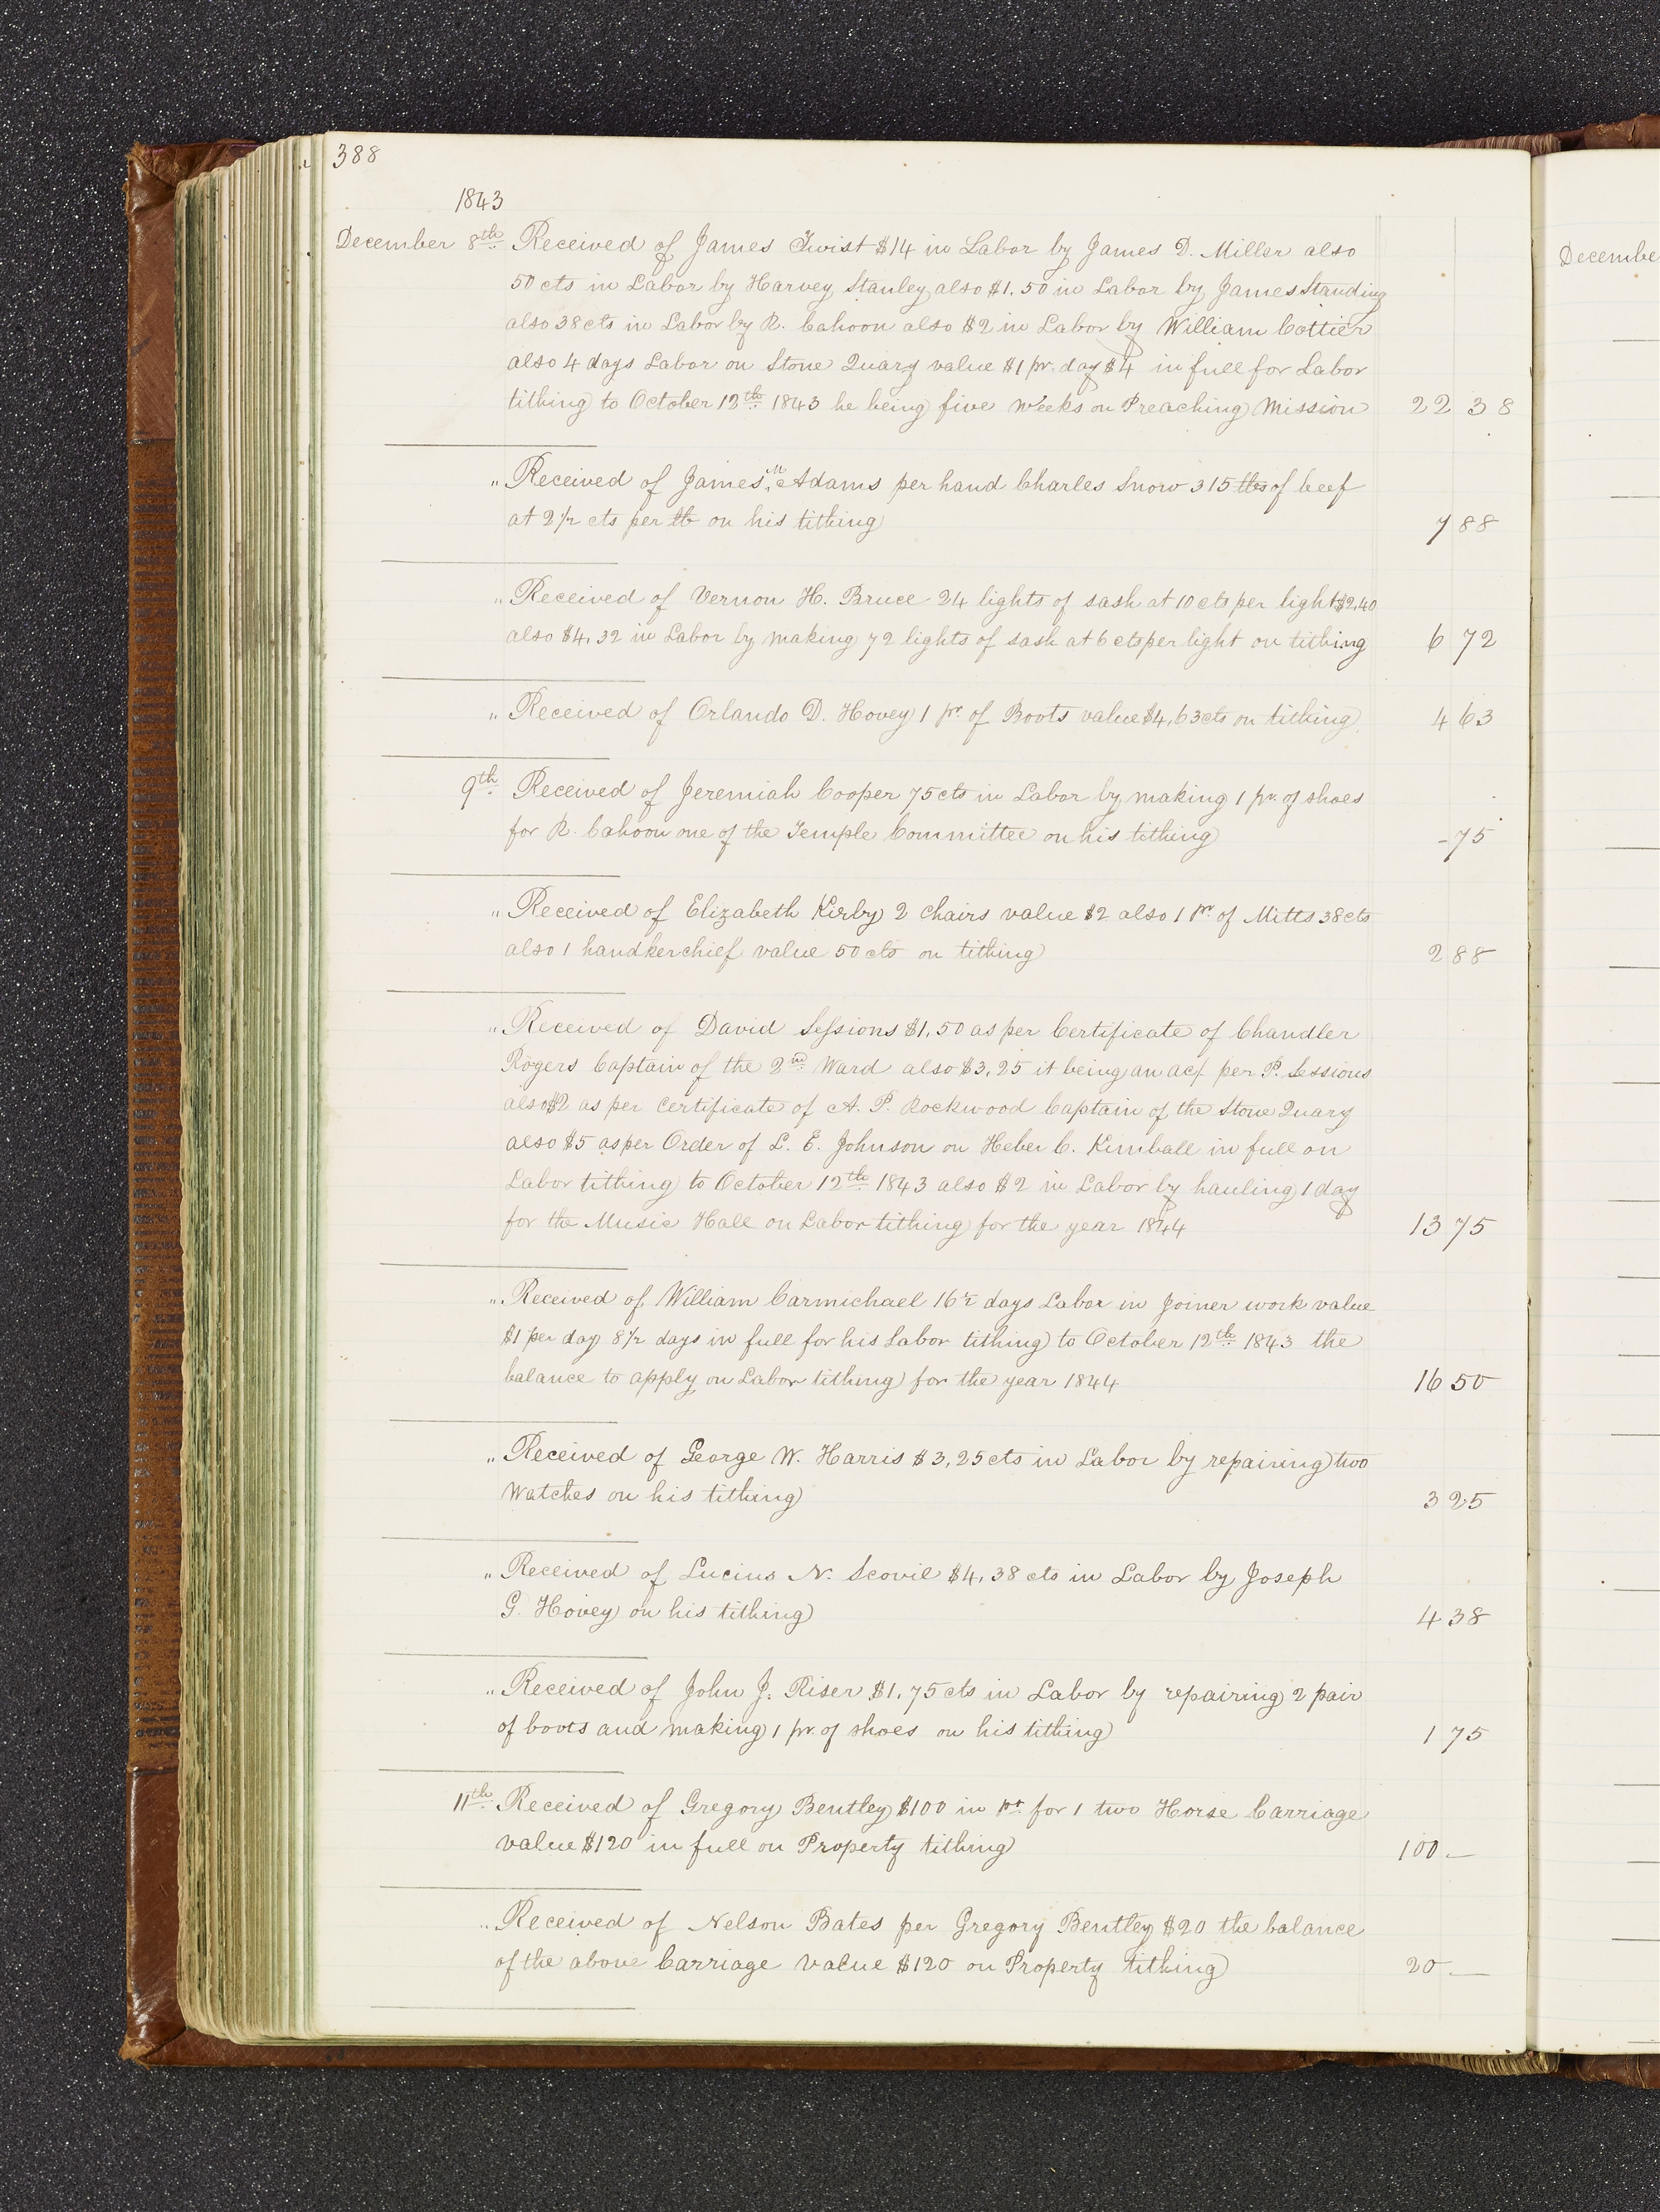 388
1843
December 8th Received of James Twist $14 in Labor by James D. Miller also
50 cts in Labor by Harvey Stanley also $1.50 in Labor by James Standing
also 38 cts in Labor by R. Cahoon also $2 in Labor by William Cottier
also 4 days Labor on Stone Quary value $1 pr. day $4 in full for Labor
tithing to October 12th 1843 he being five weeks on Preaching Mission 22 38
" Received of James M Adams per hand Charles Snow 315 lbs of beef
at 2 1/2 cts per lb on his tithing 7 88
" Received of Vernon H. Bruce 24 lights of sash at 10 cts per light $2,40
also $4,32 in Labor by making 72 lights of sash at 6 cts per light on tithing 6 72
" Received of Orlando D. Hovey 1 pr. of Boots value $4,63 cts on tithing 4 63
9th Received of Jeremiah Cooper 75 cts in Labor by making 1 pr. of shoes
for R. Cahoon one of the Temple Committee on his tithing - 75
" Received of Elizabeth Kirby 2 chairs value $2 also 1 pr. of Mitts 38 cts
also 1 handkerchief value 50 cts on tithing 2 88
" Received of David Sessions $1,50 as per Certificate of Chandler
Rogers Captain of the 2nd Ward also $3,25 it being an ac/. per P. Sessions
also $2 as per Certificate of A. P. Rockwood Captain of the Stone Quary
also $5 as per Order of L. E. Johnson on Heber C. Kimball in full on
Labor tithing to October 12th 1843 also $2 in Labor by hauling 1 day
for the Music Hall on Labor tithing for the year 1844 13 75
" Received of William Carmichael 16 1/2 days Labor in Joiner work value
$1 per day 8 1/2 days in full for his Labor tithing to October 12th 1843 the
balance to apply on Labor tithing for the year 1844 16 50
" Received of George W. Harris $3,25 cts in Labor by repairing two
Watches on his tithing 3 25
" Received of Lucius N. Scovil $4,38 cts in Labor by Joseph
G. Hovey on his tithing 4 38
" Received of John J. Riser $1.75 cts in Labor by repairing 2 pair
of boots and making 1 pr. of shoes on his tithing 1 75
11th Received of Gregory Bentley $100 in pt. for 1 two Horse Carriage
value $120 in full on Property tithing 100 —
" Received of Nelson Bates per Gregory Bentley $20 the balance
of the above Carriage value $120 on Property tithing 20 —
Decembe